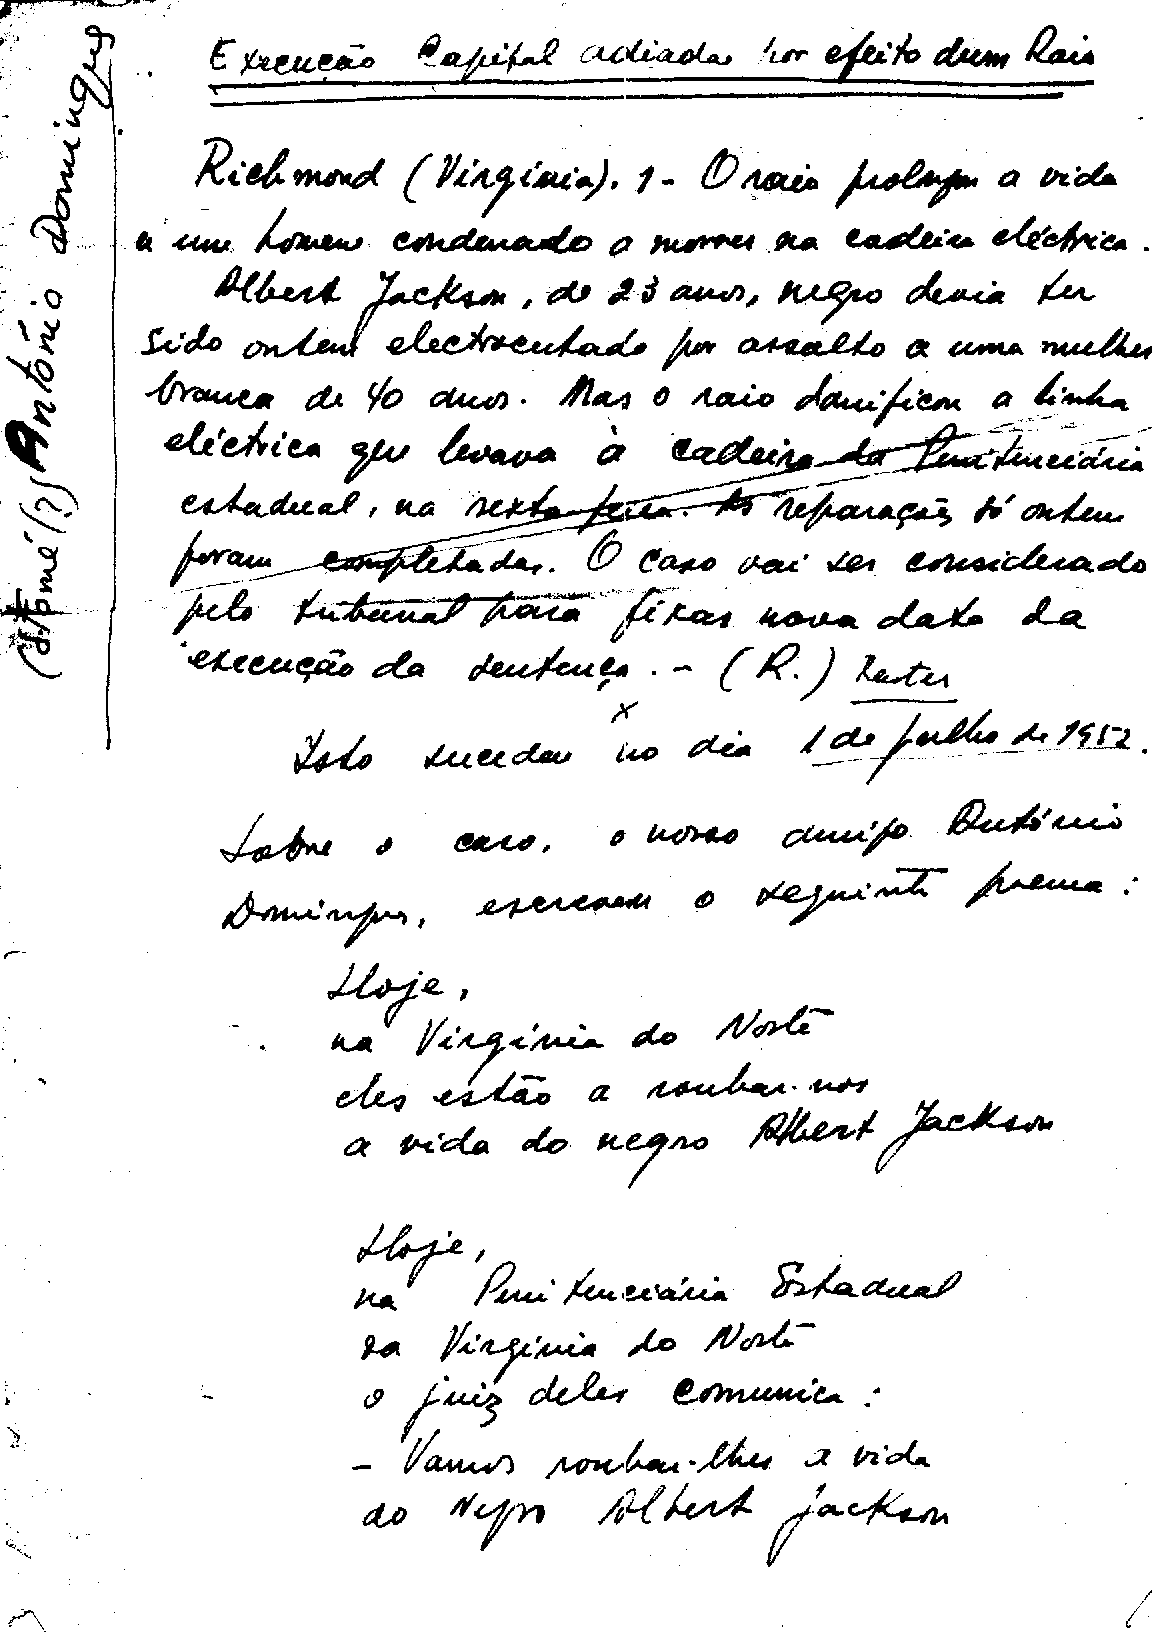 Execução Capital adiada por efeito dum Raio
Richmond (Virgínia). 1 - O raio prolongou a vida
a um homem condenado a morrer na cadeira eléctrica.
Albert Jackson, de 23 anos, negro devia ter
sido ontem electrocutado por assalto a uma mulher
branca de 40 anos. Mas o raio danificou a linha
eléctrica que levava à cadeira da Penitenciária
estadual, na sexta-feira. As reparações só ontem
foram completadas. O caso vai ser considerado
pelo tribunal para fixar nova data da
execução da sentença. - (R.) Reuter
x
Isto sucedeu no dia 1 de Julho de 1952.
Sobre o caso, o nosso amigo António
Domingues, escreveu o seguinte poema:
Hoje,
na Virgínia do Norte
eles estão a roubar-nos
a vida do negro Albert Jackson
Hoje,
na Penitenciária Estadual
da Virgínia do Norte
o juiz deles comunica:
- Vamos roubar-lhes a vida
do Negro Albert Jackson
(Tomé(?)) António Domingues